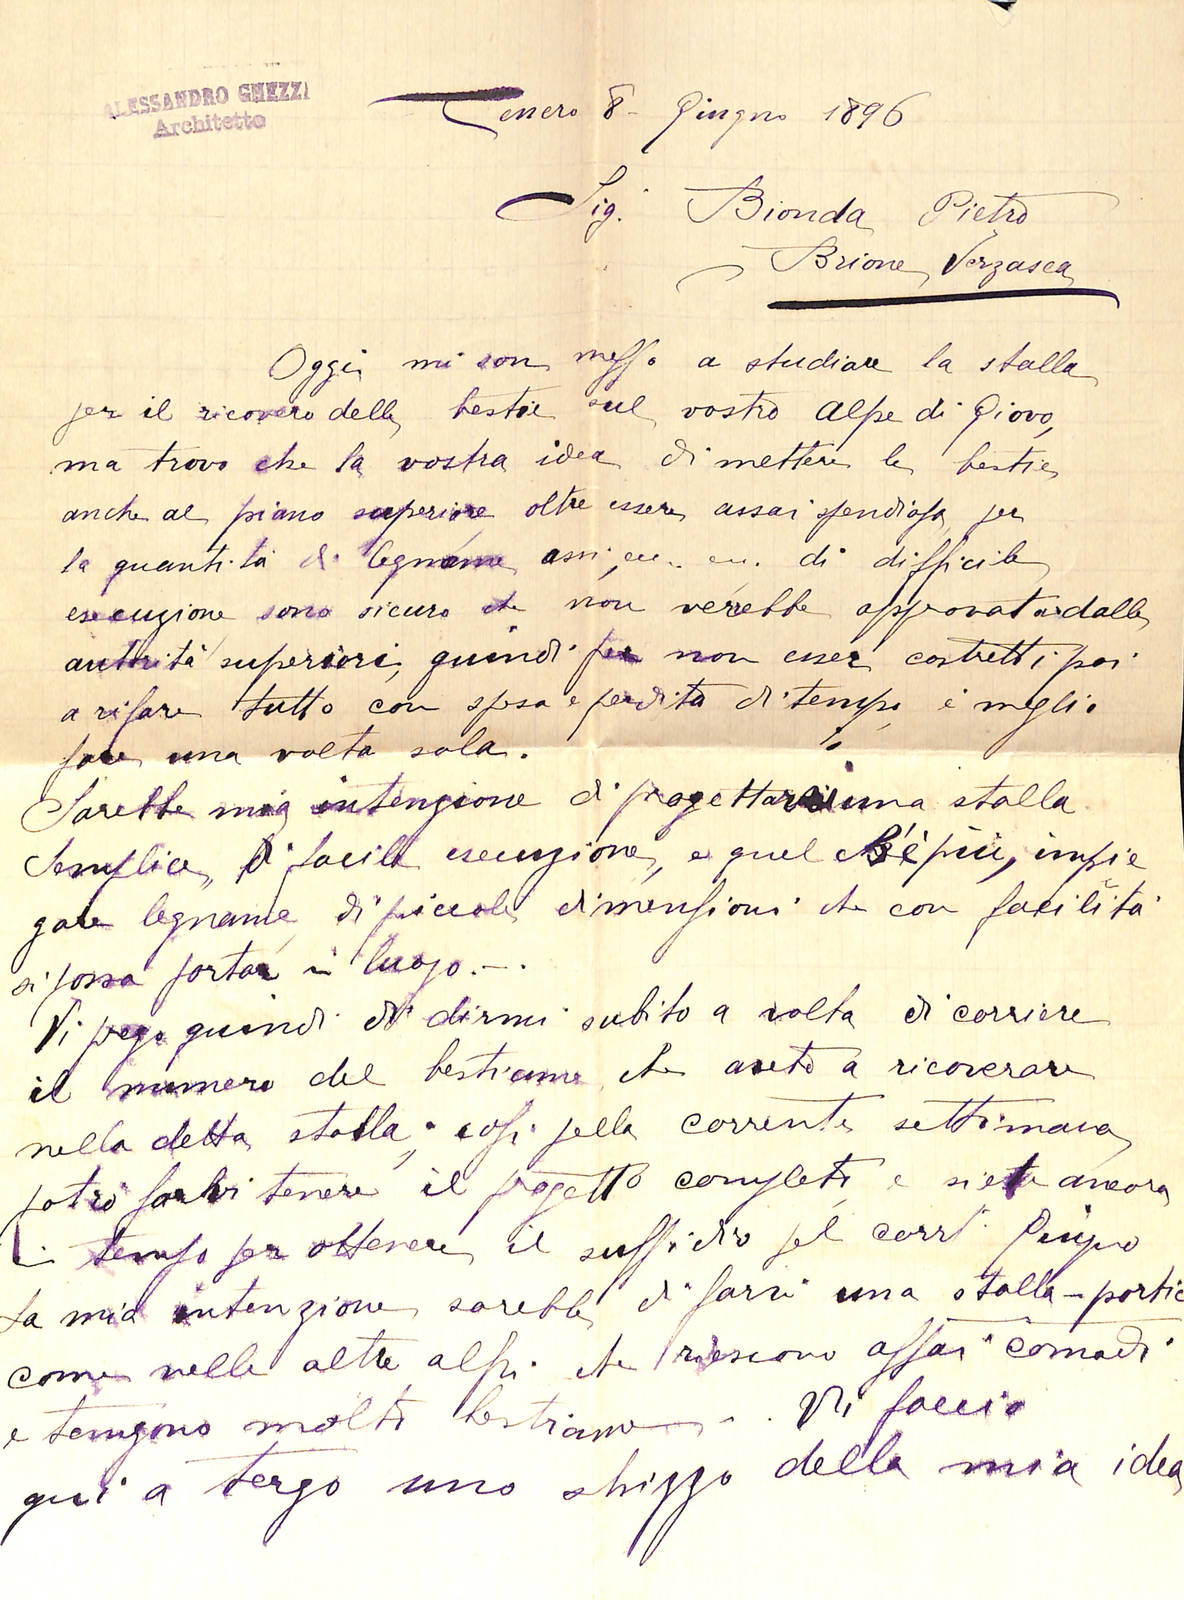 ALESSANDRO GHEZZI
Architetto
Tenero 8 - Giugno 1896
Sig. Bionda Pietro
Brione Verzasca
Oggi mi son messo a studiare la stalla
per il ricovero delle bestie sul vostro Alpe di Giovo,
ma trovo che la vostra idea di mettere le bestie
anche al piano superiore oltre essere assai spendiosa per
la quantità di legname assi, ecc. ecc. di difficile
esecuzione sono sicuro che non verebbe approvato dalle
autorità superiori, quindi per non esser costretti poi
a rifare tutto con spesa e perdita di tempo, è meglio
farlo una volta sola.
Sarebbe mia intenzione di progettarvi una stalla
semplice, di facile esecuzione, e quel ch'è più, impie
gare legname di piccole dimensioni che con facilità
si possa portar in luogo. -.
Vi prego quindi di dirmi subito a volta di corriere
il numero del bestiame che avete a ricoverare
nella detta stalla; così nella corrente settimana
potrò farvi tenere il progetto completo, e siete ancora
in tempo per ottenere il sussidio pel corr. Giugno
La mia intenzione sarebbe di farvi una stalla-portic
come nelle altre alpi che riescono assai comodi
e tengono molto bestiame - . Vi faccio
qui a tergo uno shizzo della mia idea